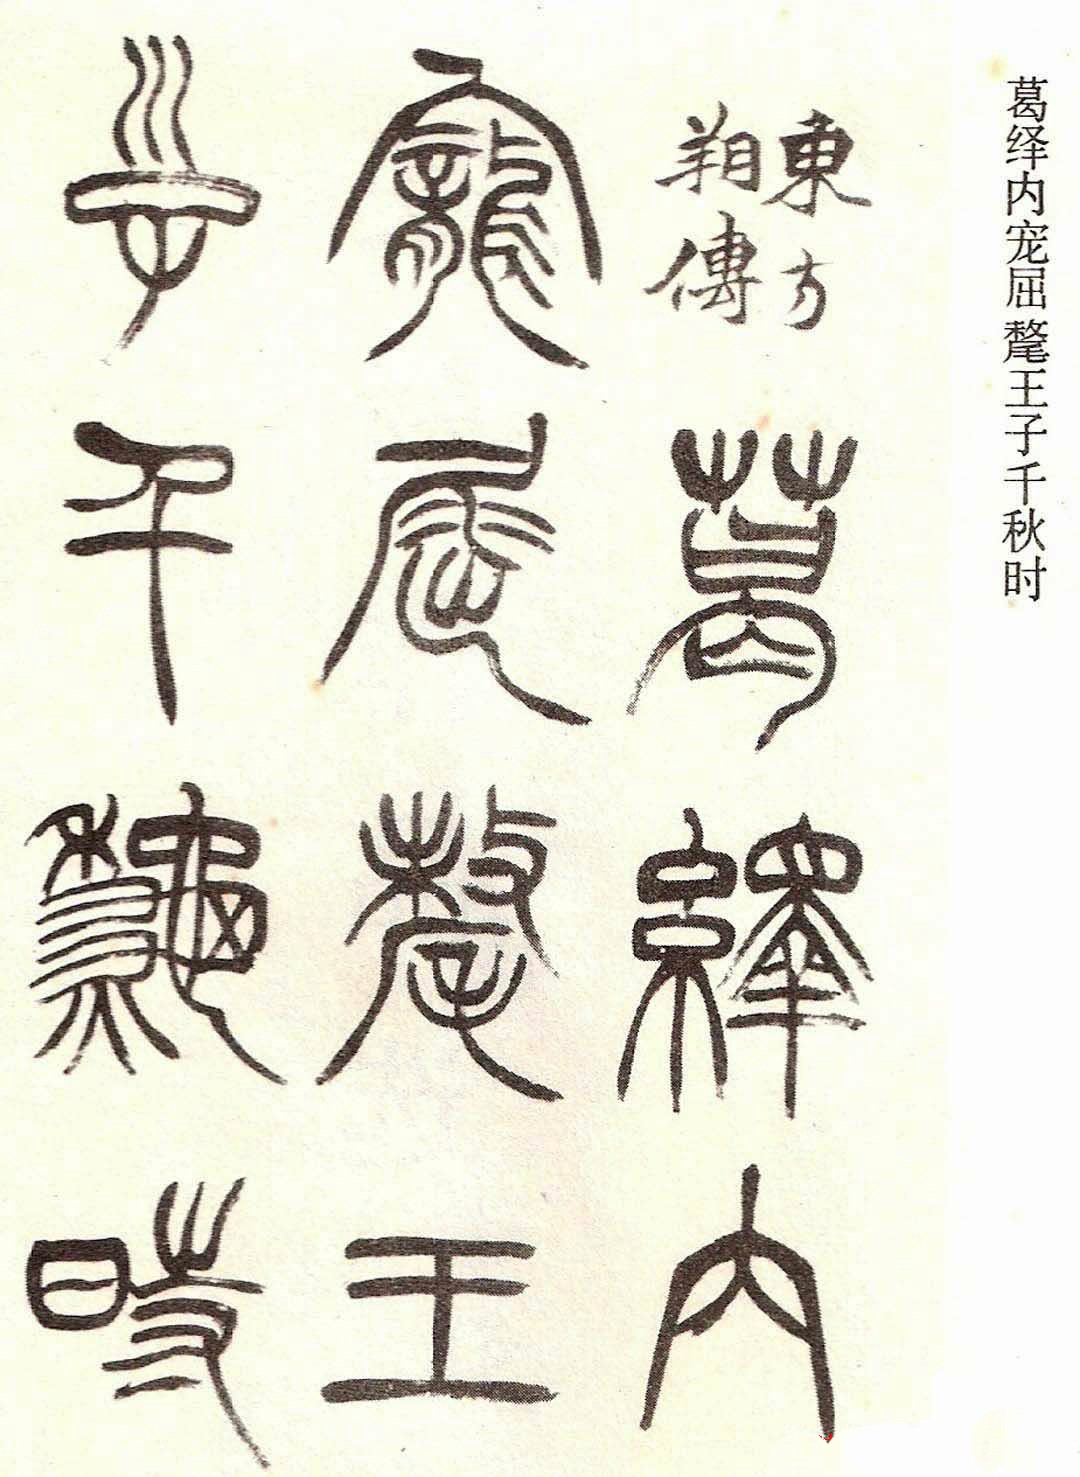 葛绎内宠屈氂王子千秋时
東方
朔傳
葛繹内
寵屈氂王
子千秋時